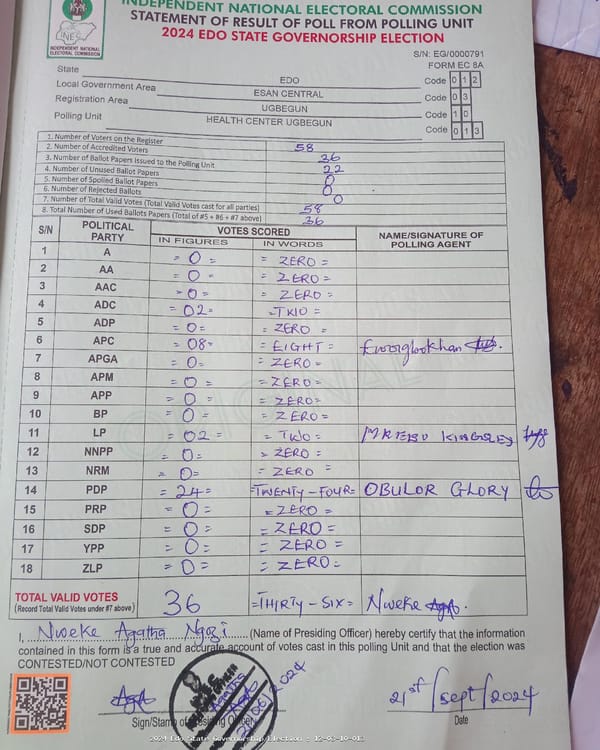 INDEPENDENT NATIONAL ELECTORAL COMMISSION
STATEMENT OF RESULT OF POLL FROM POLLING UNIT
2024 EDO STATE GOVERNORSHIP ELECTION
INEC
INDEPENDENT NATIONAL ELECTORAL COMMISSION
S/N: EG/0000791
FORM EC 8A
State EDO Code 0 1 2
Local Government Area ESAN CENTRAL Code 0 3
Registration Area UGBEGUN Code 1 0
Polling Unit HEALTH CENTER UGBEGUN Code 0 1 3
1. Number of Voters on the Register 58
2. Number of Accredited Voters 36
3. Number of Ballot Papers issued to the Polling Unit
4. Number of Unused Ballot Papers 22
5. Number of Spoiled Ballot Papers 0
6. Number of Rejected Ballots 0
7. Number of Total Valid Votes (Total Valid Votes cast for all parties)
8. Total Number of Used Ballots Papers (Total of #5 + #6 + #7 above) 36
S/N POLITICAL PARTY VOTES SCORED NAME/SIGNATURE OF POLLING AGENT
IN FIGURES IN WORDS
1 A =0= =ZERO=
2 AA =0= =ZERO=
3 AAC =0= =ZERO=
4 ADC =02= =TWO=
5 ADP =0= =ZERO=
6 APC =08= =EIGHT=
7 APGA =0= =ZERO=
8 APM =0= =ZERO=
9 APP =0= =ZERO=
10 BP =0= =ZERO=
11 LP =02= =TWO= KINGSLEY
12 NNPP =0= =ZERO=
13 NRM =0= =ZERO=
14 PDP =24= =TWENTY-FOUR= OBULOR GLORY
15 PRP =0= =ZERO=
16 SDP =0= =ZERO=
17 YPP =0= =ZERO=
18 ZLP =0= =ZERO=
TOTAL VALID VOTES 36 =THIRTY-SIX= Nweke
(Record Total Valid Votes under #7 above)
I, Nweke Agatha Ngozi (Name of Presiding Officer) hereby certify that the information
contained in this form is a true and accurate account of votes cast in this polling Unit and that the election was
CONTESTED/NOT CONTESTED
21st/Sept/2024
Sign/Stamp of Presiding Officer Date
2024 Edo State Governorship Election - 12-03-10-013